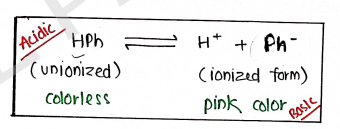 Acidic HPh ⇌ H⁺ + Ph⁻
(unionized) (ionized form)
colorless pink color Basic